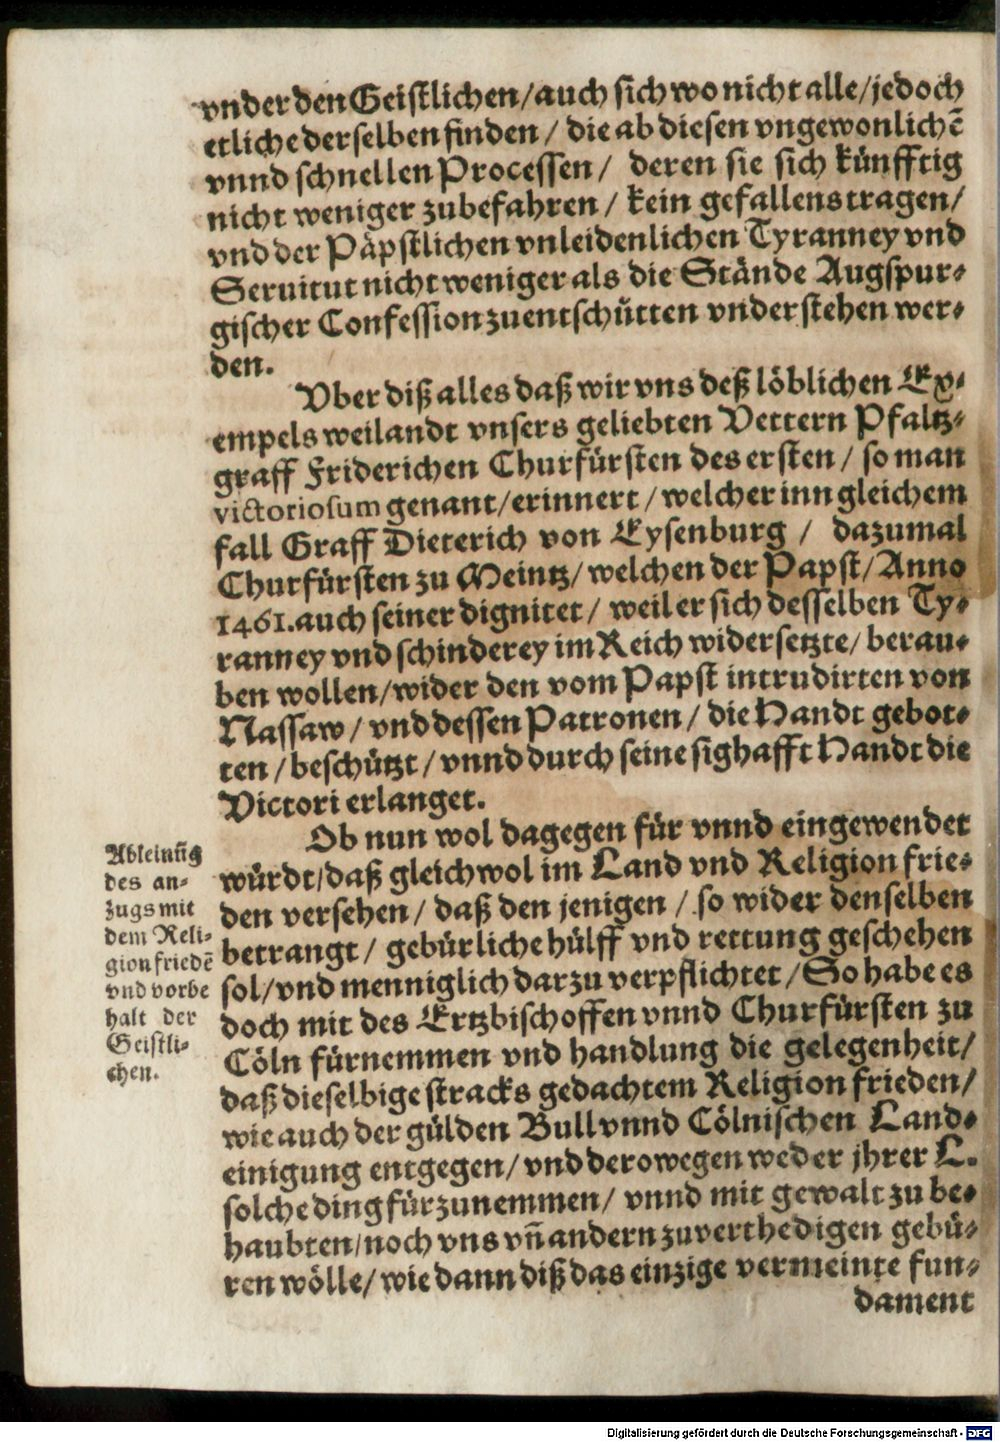 vnder den Geistlichen/auch sich wo nicht alle/jedoch
etliche derselben finden / die ab diesen vngewonlichē
vnnd schnellen Processen / deren sie sich künfftig
nicht weniger zubefahren / kein gefallens tragen/
vnd der Päpstlichen vnleidenlichen Tyranney vnd
Seruitut nicht weniger als die Stände Augspur-
gischer Confession zuentschütten vnderstehen wer-
den.
Vber diß alles daß wir vns deß löblichen Ex-
empels weilandt vnsers geliebten Vettern Pfaltz-
graff Friderichen Churfürsten des ersten / so man
victoriosum genant/erinnert / welcher inn gleichem
fall Graff Dieterich von Eysenburg / dazumal
Churfürsten zu Meintz/welchen der Papst/Anno
1461.auch seiner dignitet / weil er sich desselben Ty-
ranney vnd schinderey im Reich widersetzte/ berau-
ben wollen/wider den vom Papst intrudirten von
Nassaw / vnd dessen Patronen / die Handt gebot-
ten / beschützt / vnnd durch seine sighafft Handt die
Victori erlanget.
Ob nun wol dagegen für vnnd eingewendet
würdt/daß gleichwol im Land vnd Religion frie-
den versehen / daß den jenigen / so wider denselben
betrangt / gebürliche hülff vnd rettung geschehen
sol/vnd menniglich darzu verpflichtet / So habe es
doch mit des Ertzbischoffen vnnd Churfürsten zu
Cöln fürnemmen vnd handlung die gelegenheit/
daß dieselbige stracks gedachtem Religion frieden/
wie auch der gülden Bull vnnd Cölnischen Land-
einigung entgegen/ vnd derowegen weder jhrer L.
solche ding fürzunemmen/ vnnd mit gewalt zu be-
haubten/noch vns vñ andern zuverthedigen gebü-
ren wölle/ wie dann diß das einzige vermeinte fun-
dament
Ableinūg
des an-
zugs mit
dem Reli-
gion friedē
vnd vorbe
halt der
Geistli-
chen.
Digitalisierung gefördert durch die Deutsche Forschungsgemeinschaft - DFG